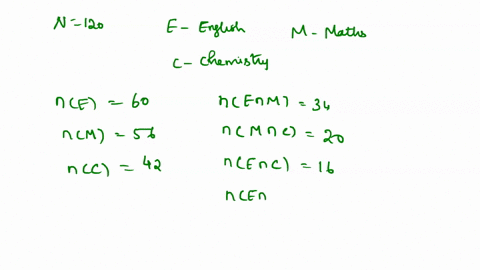 N=120 E - English M - Maths
C - Chemistry
n(E) = 60 n(E∩M) = 34
n(M) = 56 n(M∩C) = 20
n(C) = 42 n(E∩C) = 16
n(E∩